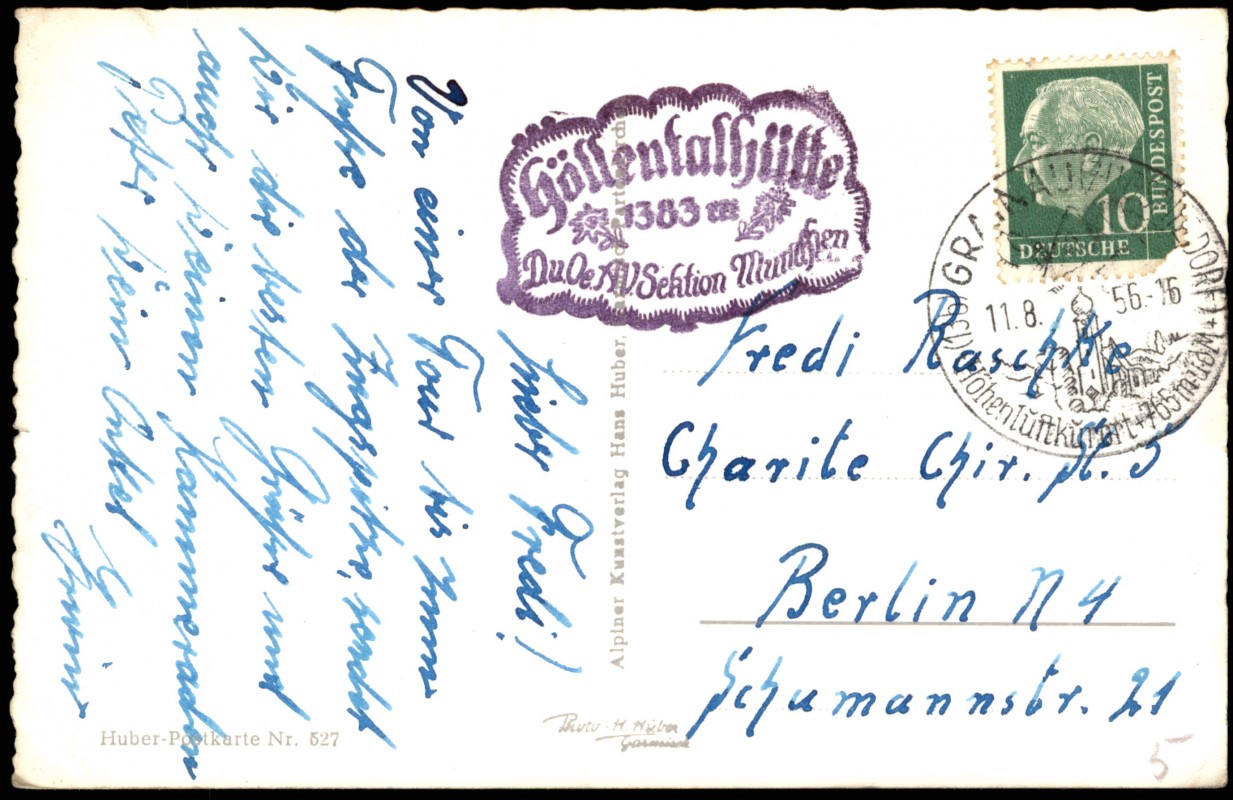 Höllentalhütte
1383 m
D.u.Oe.A.V. Sektion München
BUNDESPOST
10
DEUTSCHE
GRAINAU
11.8. 56.-16
Höhenluftkurort + 765 m
Lieber Fredi!
Von einer Tour bis zum
Fuße der Zugspitze, sendet
Dir die besten Grüße und
auch Deinen Kammeraden
Dein Onkel
Erwin
Fredi Raschke
Charite Chir. St. 5
Berlin N 4
Schumannstr. 21
Alpiner Kunstverlag Hans Huber,
Huber-Postkarte Nr. 527
Photo - H. Huber
Garmisch
5